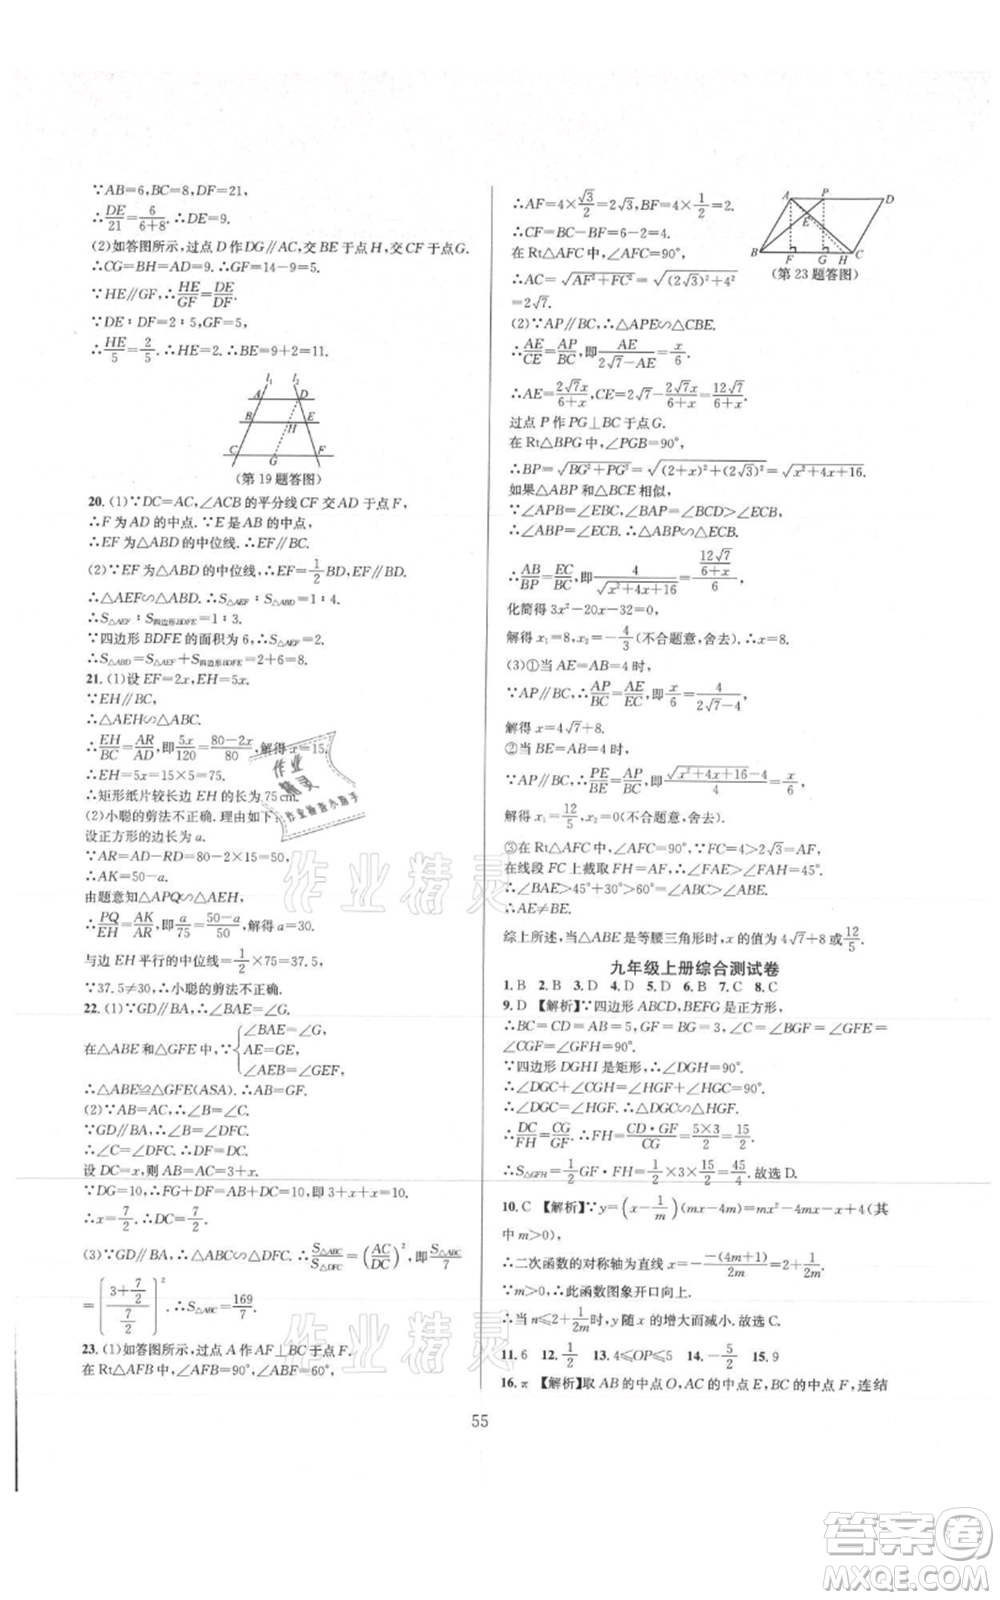 ∵AB=6,BC=8,DF=21,
∴DE/21=6/(6+8).∴DE=9.
(2)如答图所示,过点D作DG∥AC,交BE于点H,交CF于点G.
∴CG=BH=AD=9.∴GF=14-9=5.
∵HE∥GF,∴HE/GF=DE/DF.
∵DE:DF=2:5,GF=5,
∴HE/5=2/5.∴HE=2.∴BE=9+2=11.
l₁ l₂
A D
B H E
C G F
(第19题答图)
20.(1)∵DC=AC,∠ACB的平分线CF交AD于点F,
∴F为AD的中点.∵E是AB的中点,
∴EF为△ABD的中位线.∴EF∥BC.
(2)∵EF为△ABD的中位线,∴EF=1/2BD,EF∥BD.
∴△AEF∽△ABD.∴S△AEF:S△ABD=1:4.
∴S△AEF:S四边形BDFE=1:3.
∵四边形BDFE的面积为6,∴S△AEF=2.
∴S△ABD=S△AEF+S四边形BDFE=2+6=8.
21.(1)设EF=2x,EH=5x.
∵EH∥BC,
∴△AEH∽△ABC.
∴EH/BC=AR/AD,即5x/120=(80-2x)/80,解得x=15.
∴EH=5x=15×5=75.
∴矩形纸片较长边EH的长为75cm.
(2)小聪的剪法不正确.理由如下:
设正方形的边长为a.
∵AR=AD-RD=80-2×15=50,
∴AK=50-a.
由题意知△APQ∽△AEH,
∴PQ/EH=AK/AR,即a/75=(50-a)/50,解得a=30.
与边EH平行的中位线=1/2×75=37.5,
∵37.5≠30,∴小聪的剪法不正确.
22.(1)∵GD∥BA,∴∠BAE=∠G.
在△ABE和△GFE中,∵{∠BAE=∠G,
AE=GE,
∠AEB=∠GEF,
∴△ABE≌△GFE(ASA).∴AB=GF.
(2)∵AB=AC,∴∠B=∠C.
∵GD∥BA,∴∠B=∠DFC.
∴∠C=∠DFC.∴DF=DC.
设DC=x,则AB=AC=3+x.
∵DG=10,∴FG+DF=AB+DF=10,即3+x+x=10.
∴x=7/2.∴DF=DC=7/2.
(3)∵GD∥BA,∴△ABC∽△DFC.∴S△ABC/S△DFC=(AC/DC)²,即S△ABC/7
=[(3+7/2)/(7/2)]².∴S△ABC=169/7.
23.(1)如答图所示,过点A作AF⊥BC于点F.
在Rt△AFB中,∠AFB=90°,∠ABF=60°,
∴AF=4×√3/2=2√3,BF=4×1/2=2.
∴CF=BC-BF=6-2=4.
在Rt△AFC中,∠AFC=90°,
∴AC=√(AF²+FC²)=√((2√3)²+4²)
=2√7.
A P D
E
B F G H C
(第23题答图)
(2)∵AP∥BC,∴△APE∽△CBE.
∴AE/CE=AP/BC,即AE/(2√7-AE)=x/6.
∴AE=2√7x/(6+x),CE=2√7-2√7x/(6+x)=12√7/(6+x).
过点P作PG⊥BC于点G.
在Rt△BPG中,∠PGB=90°,
∴BP=√(BG²+PG²)=√((2+x)²+(2√3)²)=√(x²+4x+16).
如果△ABP和△BCE相似,
∵∠APB=∠EBC,∠BAP=∠BCD>∠ECB,
∴∠ABP=∠ECB.∴△ABP∽△ECB.
∴AB/BP=EC/BC,即4/√(x²+4x+16)=(12√7/(6+x))/6,
化简得3x²-20x-32=0,
解得x₁=8,x₂=-4/3(不合题意,舍去).∴x=8.
(3)①当AE=AB=4时,
∵AP∥BC,∴AP/BC=AE/EC,即x/6=4/(2√7-4),
解得x=4√7+8.
②当BE=AB=4时,
∵AP∥BC,∴PE/BE=AP/BC,即(√(x²+4x+16)-4)/4=x/6,
解得x₁=12/5,x₂=0(不合题意,舍去).
③在Rt△AFB中,∵FC=4>2√3=AF,
在线段FC上截取FH=AF,∴∠FAE>∠FAH=45°.
∴∠BAE>45°+30°>60°=∠ABC>∠ABE.
∴AE≠BE.
综上所述,当△ABE是等腰三角形时,x的值为4√7+8或12/5.
九年级上册综合测试卷
1.B 2.B 3.D 4.D 5.D 6.B 7.C 8.C
9.D【解析】∵四边形ABCD,BEFG是正方形,
∴BC=CD=AB=5,GF=BG=3,∠C=∠BGF=∠GFE=
∠CGF=∠GFH=90°.
∵四边形DGHI是矩形,∴∠DGH=90°.
∴∠DGC+∠CGH=∠FGH+∠HGC=90°.
∴∠DGC=∠HGF.∴△DGC∽△HGF.
∴DC/FH=CG/GF.∴FH=CD·GF/CG=5×3/2=15/2.
∴S△GFH=1/2GF·FH=1/2×3×15/2=45/4.故选D.
10.C【解析】∵y=(x-1/m)(mx-4m)=mx²-4mx-x+4(其
中m>0),
∴二次函数的对称轴为直线x=-(-(4m+1))/2m=2+1/2m.
∵m>0,∴此函数图象开口向上.
∴当n≤2+1/2m时,y随x的增大而减小.故选C.
11.6 12.1/2 13.4≤OP≤5 14.-5/2 15.9
16.π【解析】取AB的中点O,AC的中点E,BC的中点F,连结
55
作业精灵
作业精灵
作业精灵
答案卷
MXQE.COM